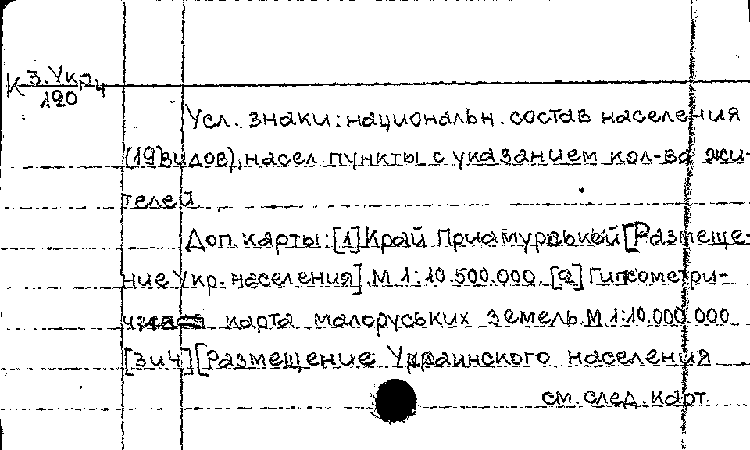 К З. Укр. 4
190
Усл. знаки: национальн. состав населения
(19 видов), насел. пункты с указанием кол-ва жи-
телей
Доп. карты: [1] Край Приамурський [Размеще-
ние Укр. населения]. М 1:10.500.000. [2] Гипсометри-
карта малоруських земель. М 1:10.000.000
[3 и 4] [Размещение Украинского населения
см. след. карт.